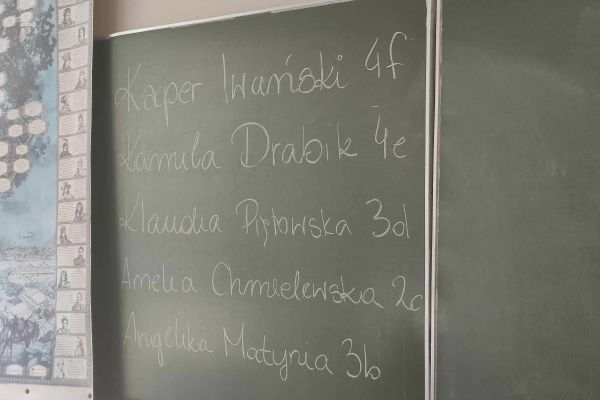 Kacper Iwański 4f
Kamila Drabik 4e
Klaudia Piętowska 3d
Amelia Chmielewska 2c
Angelika Matynia 3b